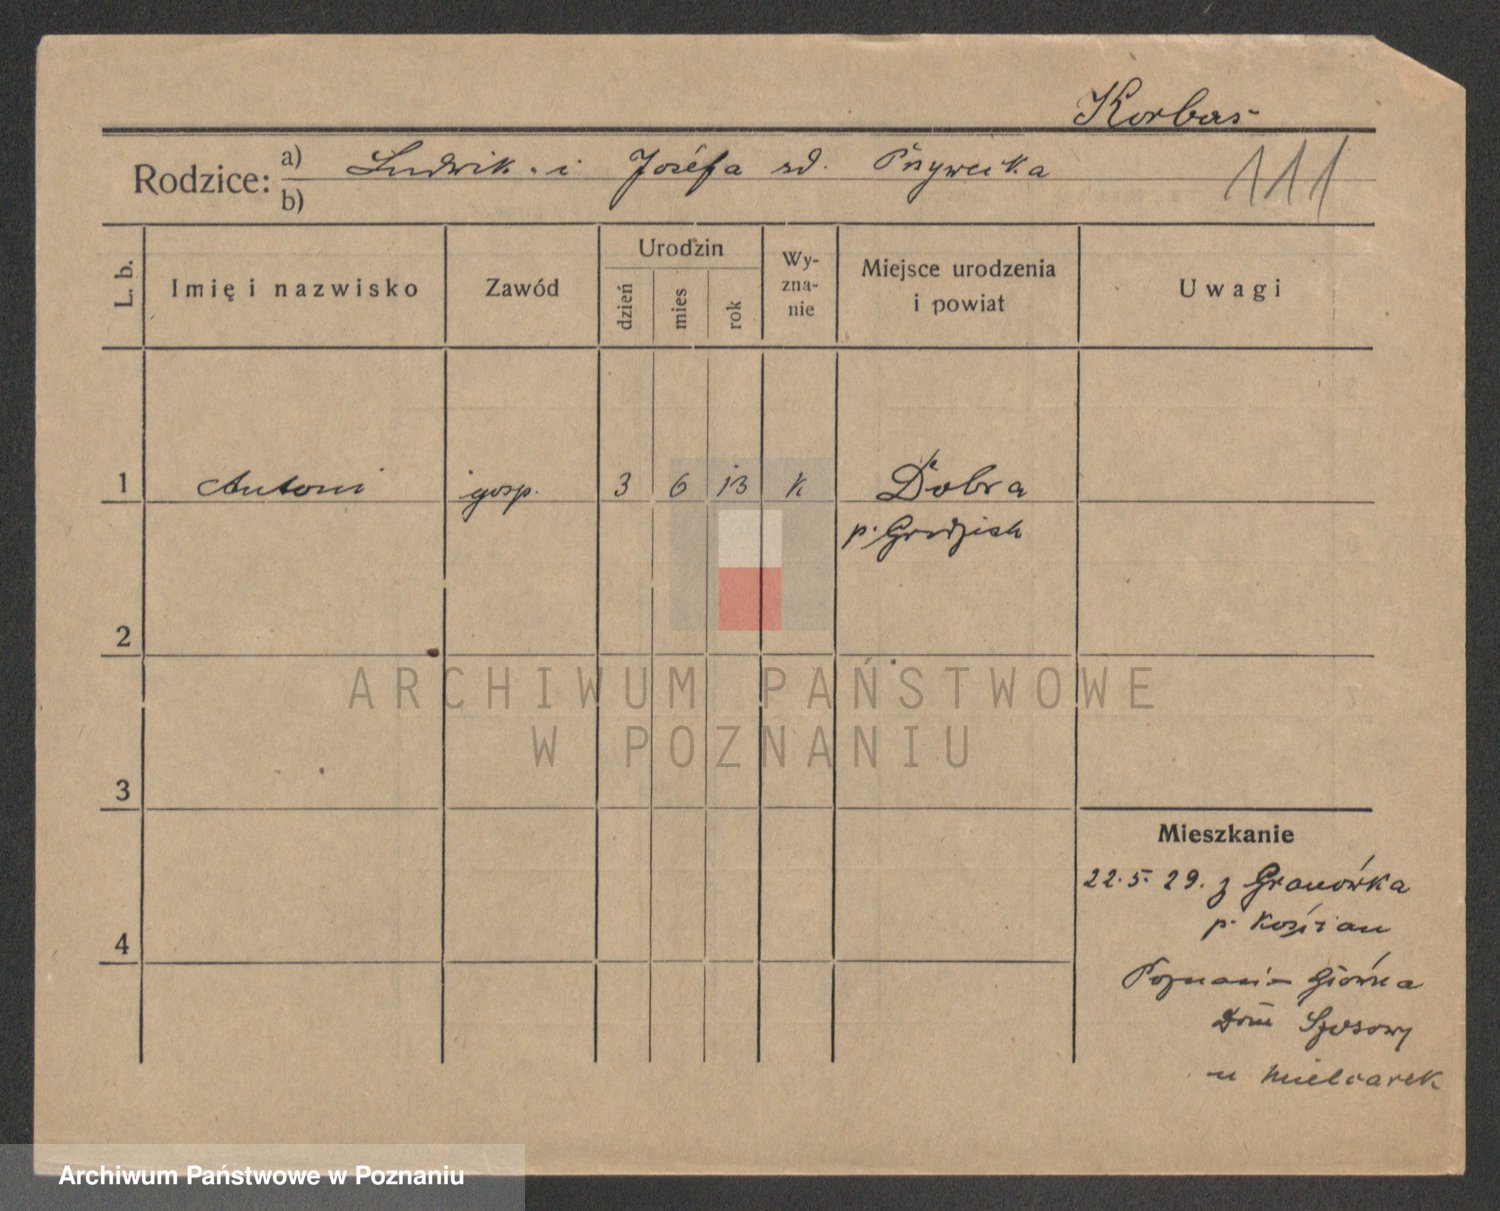 Korbas
Rodzice:
a) Ludwik. i Józefa zd.
b)
111
L. b.
Imię i nazwisko
Zawód
Urodzin
dzień
mies
rok
Wy-
zna-
nie
Miejsce urodzenia
i powiat
Uwagi
1 Antoni gosp. 3 6 13 K Dobra
p. Grodzisk
2
3
4
Mieszkanie
22.5.29. z Granówka
p. Kościan
Główna
Dom
u Mielcarek
ARCHIWUM PAŃSTWOWE
W POZNANIU
Archiwum Państwowe w Poznaniu